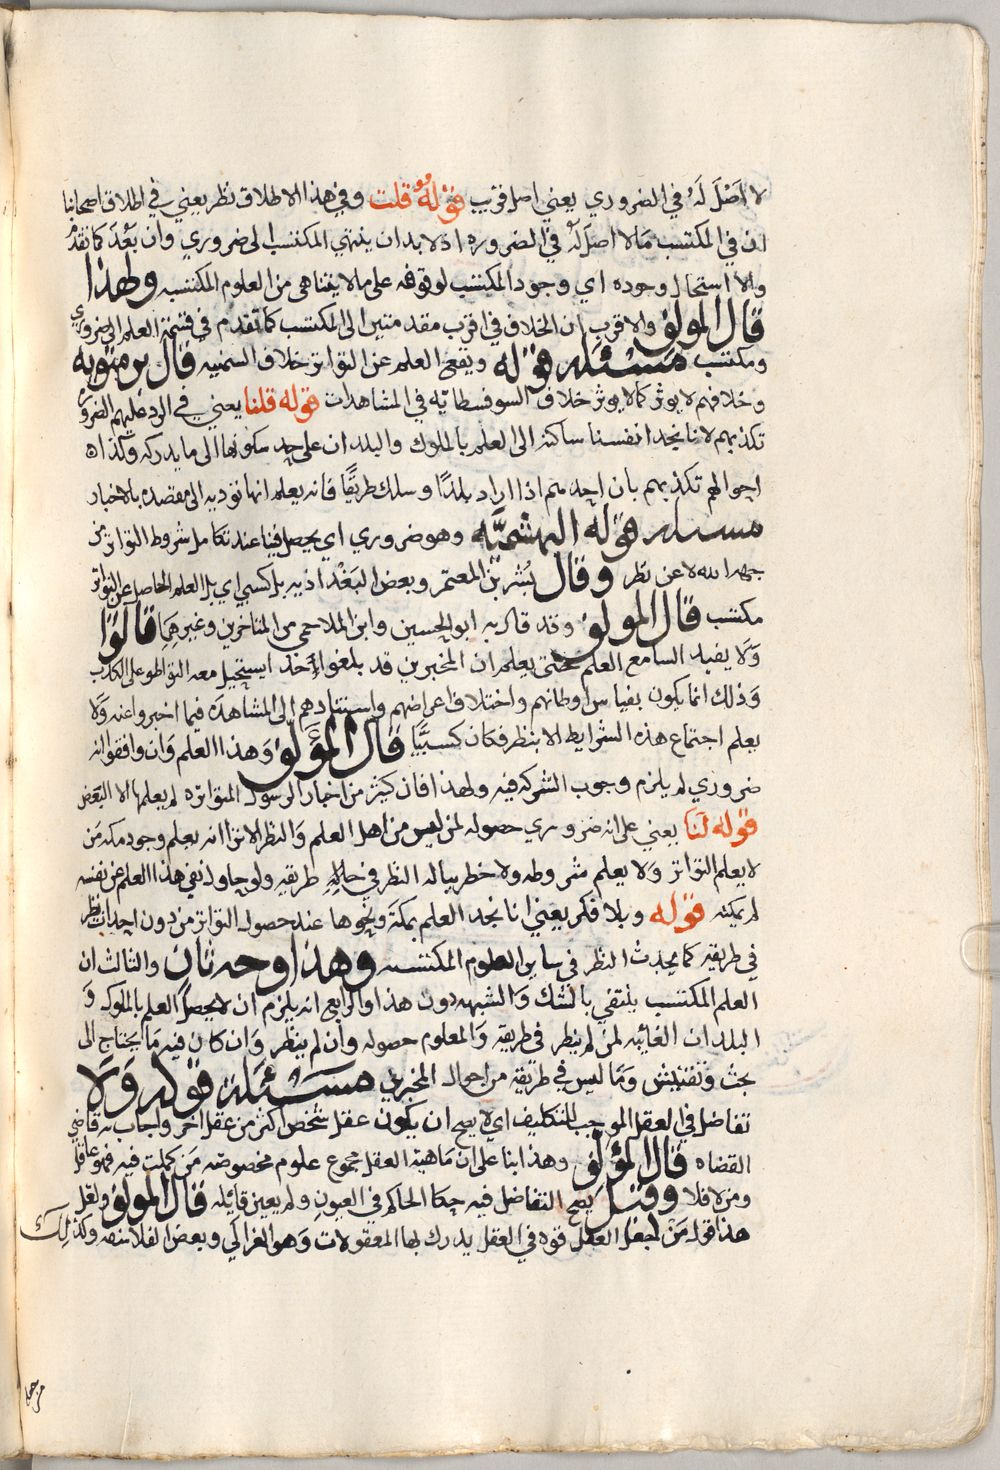 لا اصل له في الضروري يعني اصل قريب قوله قلت وفي هذا الاطلاق نظر يعني في اطلاق اصحابنا
ان في المكتسب مالا اصل له في الضروره اذ لا بد ان ينتهي المكتسب الى ضروري وان بعد كما تقدم
والا استحال وجوده اي وجود المكتسب لوقوفه على مالا يتناهى من العلوم المكتسبه ولهذا
قال المولف والاقرب ان الخلاف في اقرب مقدمتين الى المكتسب كما تقدم في قسمة العلم الى ضروري
ومكتسب مسئله قوله ويقع العلم عن التواتر خلاف السمنيه قال بن متويه
وخلافهم لا يوثر كما لا يوثر خلاف السوفسطائيه في المشاهدات قوله قلنا يعني في الرد عليهم الضروره
تكذبهم لانا نجد انفسنا ساكنة الى العلم بالملوك والبلدان على حد سكونها الى ما يدركه وكذا
احوالهم تكذبهم بان احدهم اذا اراد بلدًا وسلك طريقًا فانه يعلم انها توديه الى مقصده بالاخبار
مسئله قوله البهشميه وهو ضروري اي يحصل فينا عند تكامل شروط التواتر من
جهه الله لا عن نظر وقال بشر بن المعتمر وبعض البغداذيه بل كسبي اي بل العلم الحاصل عن التواتر
مكتسب قال المولف وقد قال به ابو الحسين وابن الملاحمي من المتاخرين وغيرهما قالوا
ولا يفيد السامع العلم حتى يعلم ان المخبرين قد بلغوا حد يستحيل معه التواطو على الكذب
وذلك انما يكون بقياس اوطانهم واختلاف اعراضهم واستنادهم الى المشاهده فيما اخبروا عنه ولا
يعلم اجتماع هذه الشرايط الا بنظر فكان كسبيًا قال المؤلف وهذا العلم وان وافقوا انه
ضروري لم يلزم وجوب الشركه فيه ولهذا فان كثير من اخبار الرسول المتواتره لم يعلمها الا البعض
قوله لنا يعني على انه ضروري حصوله لمن ليس من اهل العلم والنظر الا ترا انه يعلم وجود مكه من
لا يعلم التواتر ولا يعلم شروطه ولا خطر بباله النظر في حال طريقه ولو حاول نفي هذا العلم عن نفسه
لم يمكنه قوله وبلا فكر يعني انا نجد العلم بمكة ونحوها عند حصول التواتر من دون احداث نظر
في طريقه كما يحدث النظر في ساير العلوم المكتسبه وهذا وجه ثان والثالث ان
العلم المكتسب ينتفي بالشك والشبهه دون هذا والرابع انه يلزم ان لا يحصل العلم بالملوك و
البلدان الغائبه لمن لم ينظر في طريقه والمعلوم حصوله وان لم ينظر وان كان فيه ما يحتاج الى
بحث وتفتيش وما ليس في طريقه من احوال المخبرين مسئله قوله ولا
تفاضل في العقل الموجب للتكليف اي لا يصح ان يكون عقل شخص اكثر من عقل اخر واجاب به قاضي
القضاه قال المؤلف وهذا بنا على ان ماهية العقل مجموع علوم مخصوصه من كملت فيه فهو عاقل
ومن لا فلا وقيل يصح التفاضل فيه حكا الحاكم في العيون ولم يعين قائله قال المولف ولعل
هذا قول من جعل العقل قوه في العقل يدرك بها المعقولات وهو الغزالي وبعض الفلاسفه وكذلك